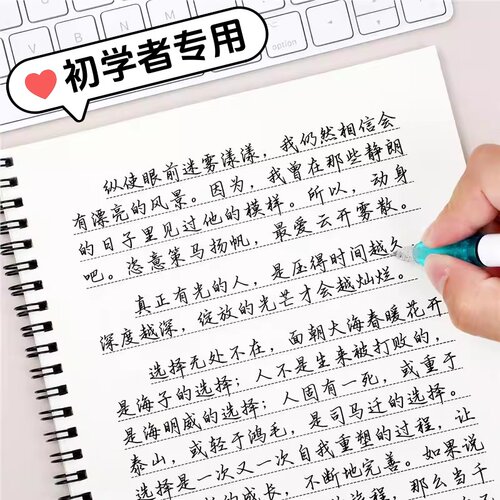 V B N M
option
初学者专用
纵使眼前迷雾漾漾，我仍然相信会
有漂亮的风景。因为，我曾在那些静朗
的日子里见过他的模样。所以，动身
吧。恣意策马扬帆，最爱云开雾散。
真正有光的人，是压得时间越久
深度越深，绽放的光芒才会越灿烂。
选择无处不在，面朝大海春暖花开
是海子的选择；人不是生来被打败的，
是海明威的选择；人固有一死，或重于
泰山，或轻于鸿毛，是司马迁的选择。
选择是一次又一次自我重塑的过程，让
的成长，不断地完善。如果说
那么当千